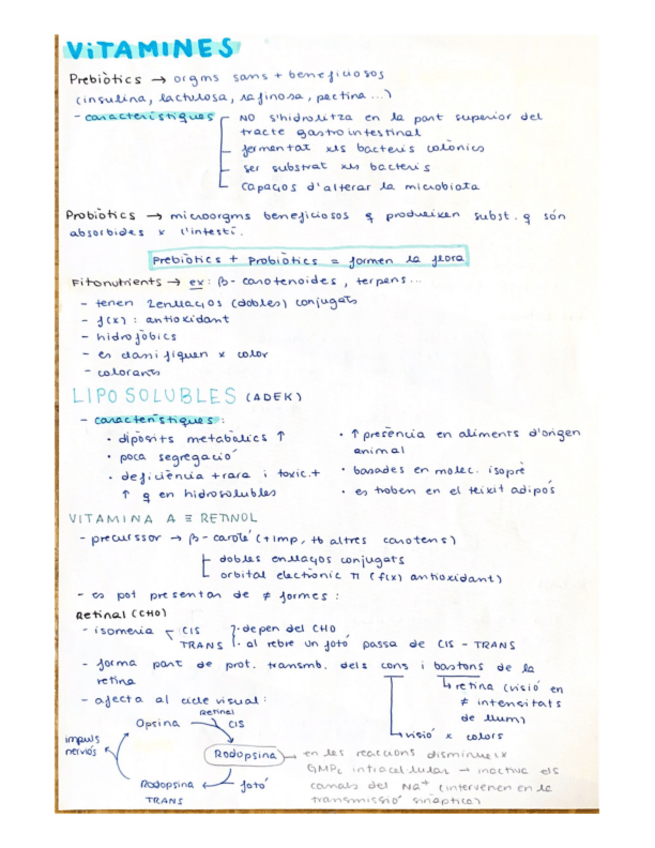 VITAMINES
Prebiòtics → orgms sans + beneficiosos
(insulina, lactulosa, rafinosa, pectina...)
- característiques
NO s'hidrolitza en la part superior del
tracte gastrointestinal
fermentat xls bacteris colònics
ser substrat xls bacteris
capaços d'alterar la microbiota
Probiòtics → microorgms beneficiosos q produeixen subst. q són
absorbides x l'intestí.
Prebiòtics + Probiòtics = formen la flora
Fitonutrients → ex: β-carotenoides, terpens...
- tenen 2enllaços (dobles) conjugats
- f(x): antioxidant
- hidrofòbics
- es classifiquen x color
- colorants
LIPOSOLUBLES (ADEK)
- característiques:
· dipòsits metabòlics ↑
· poca segregació
· deficiència + rara i toxic. +
↑ q en hidrosolubles
· ↑ presència en aliments d'origen
animal
· basades en molec. isoprè
· es troben en el teixit adipós
VITAMINA A ≡ RETINOL
- precurssor → β-caroté (+imp, tb altres carotens)
dobles enllaços conjugats
orbital electrònic π (f(x) antioxidant)
- es pot presentar de ≠ formes:
Retinal (CHO)
- isomeria
CIS
TRANS
· depen del CHO
· al rebre un fotó passa de CIS - TRANS
- forma part de prot. transmb. dels cons i bastons de la
retina
↳ retina (visió en
≠ intensitats
de llum)
↳ visió x colors
- afecta al cicle visual:
Opsina
Retinal
CIS
Rodopsina
fotó
Rodopsina
TRANS
impuls
nerviós
→ en les reaccions disminueix
GMPc intracel·lular → inactiva els
canals del Na⁺ (intervenen en la
transmissió sinàptica)